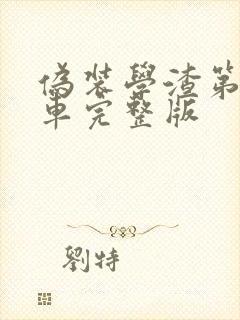 偽裝學渣第
車完整版
劉特